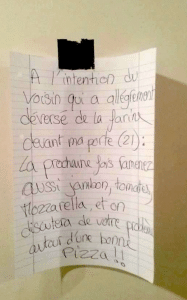 A l'intention du
Voisin qui a allègrement
déversé de la farine
devant ma porte (21):
La prochaine fois ramenez
aussi jambon, tomates,
Mozzarella, et on
discutera de votre problème
autour d'une bonne
Pizza !!